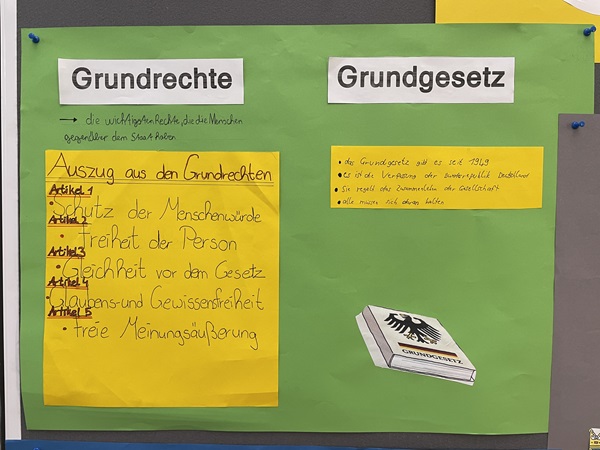 Grundrechte
→ die wichtigsten Rechte, die die Menschen
gegenüber dem Staat haben
Auszug aus den Grundrechten
Artikel 1
• Schutz der Menschenwürde
Artikel 2
• Freiheit der Person
Artikel 3
• Gleichheit vor dem Gesetz
Artikel 4
• Glaubens- und Gewissensfreiheit
Artikel 5
• freie Meinungsäußerung
Grundgesetz
• das Grundgesetz gibt es seit 1949
• es ist die Verfassung der Bundesrepublik Deutschland
• Sie regelt das Zusammenleben der Gesellschaft
• alle müssen sich daran halten
GRUNDGESETZ